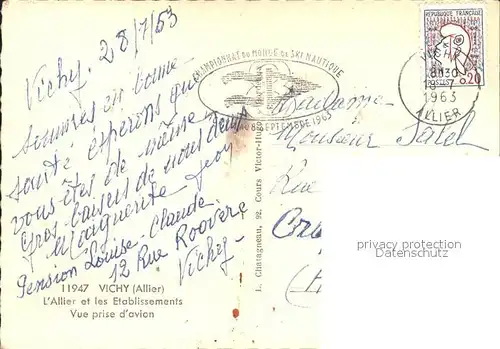 Vichy. 28/7/63
sommes en bonne
santé espérons que
vous êtes de même
Gros baisers de nous deux
Marguerite
Pension Louise-Claude
12 Rue Roovère
Vichy
11947 VICHY (Allier)
L'Allier et les Etablissements
Vue prise d'avion
L. Chatagneau, 92, Cours Victor-Hugo, Bordeaux
CHAMPIONNAT DU MONDE DE SKI NAUTIQUE
AU 8 SEPTEMBRE 1963
REPUBLIQUE FRANÇAISE
POSTES
0,20
8H30
1963
ALLIER
Madame
Monsieur
Rue
privacy protection
Datenschutz